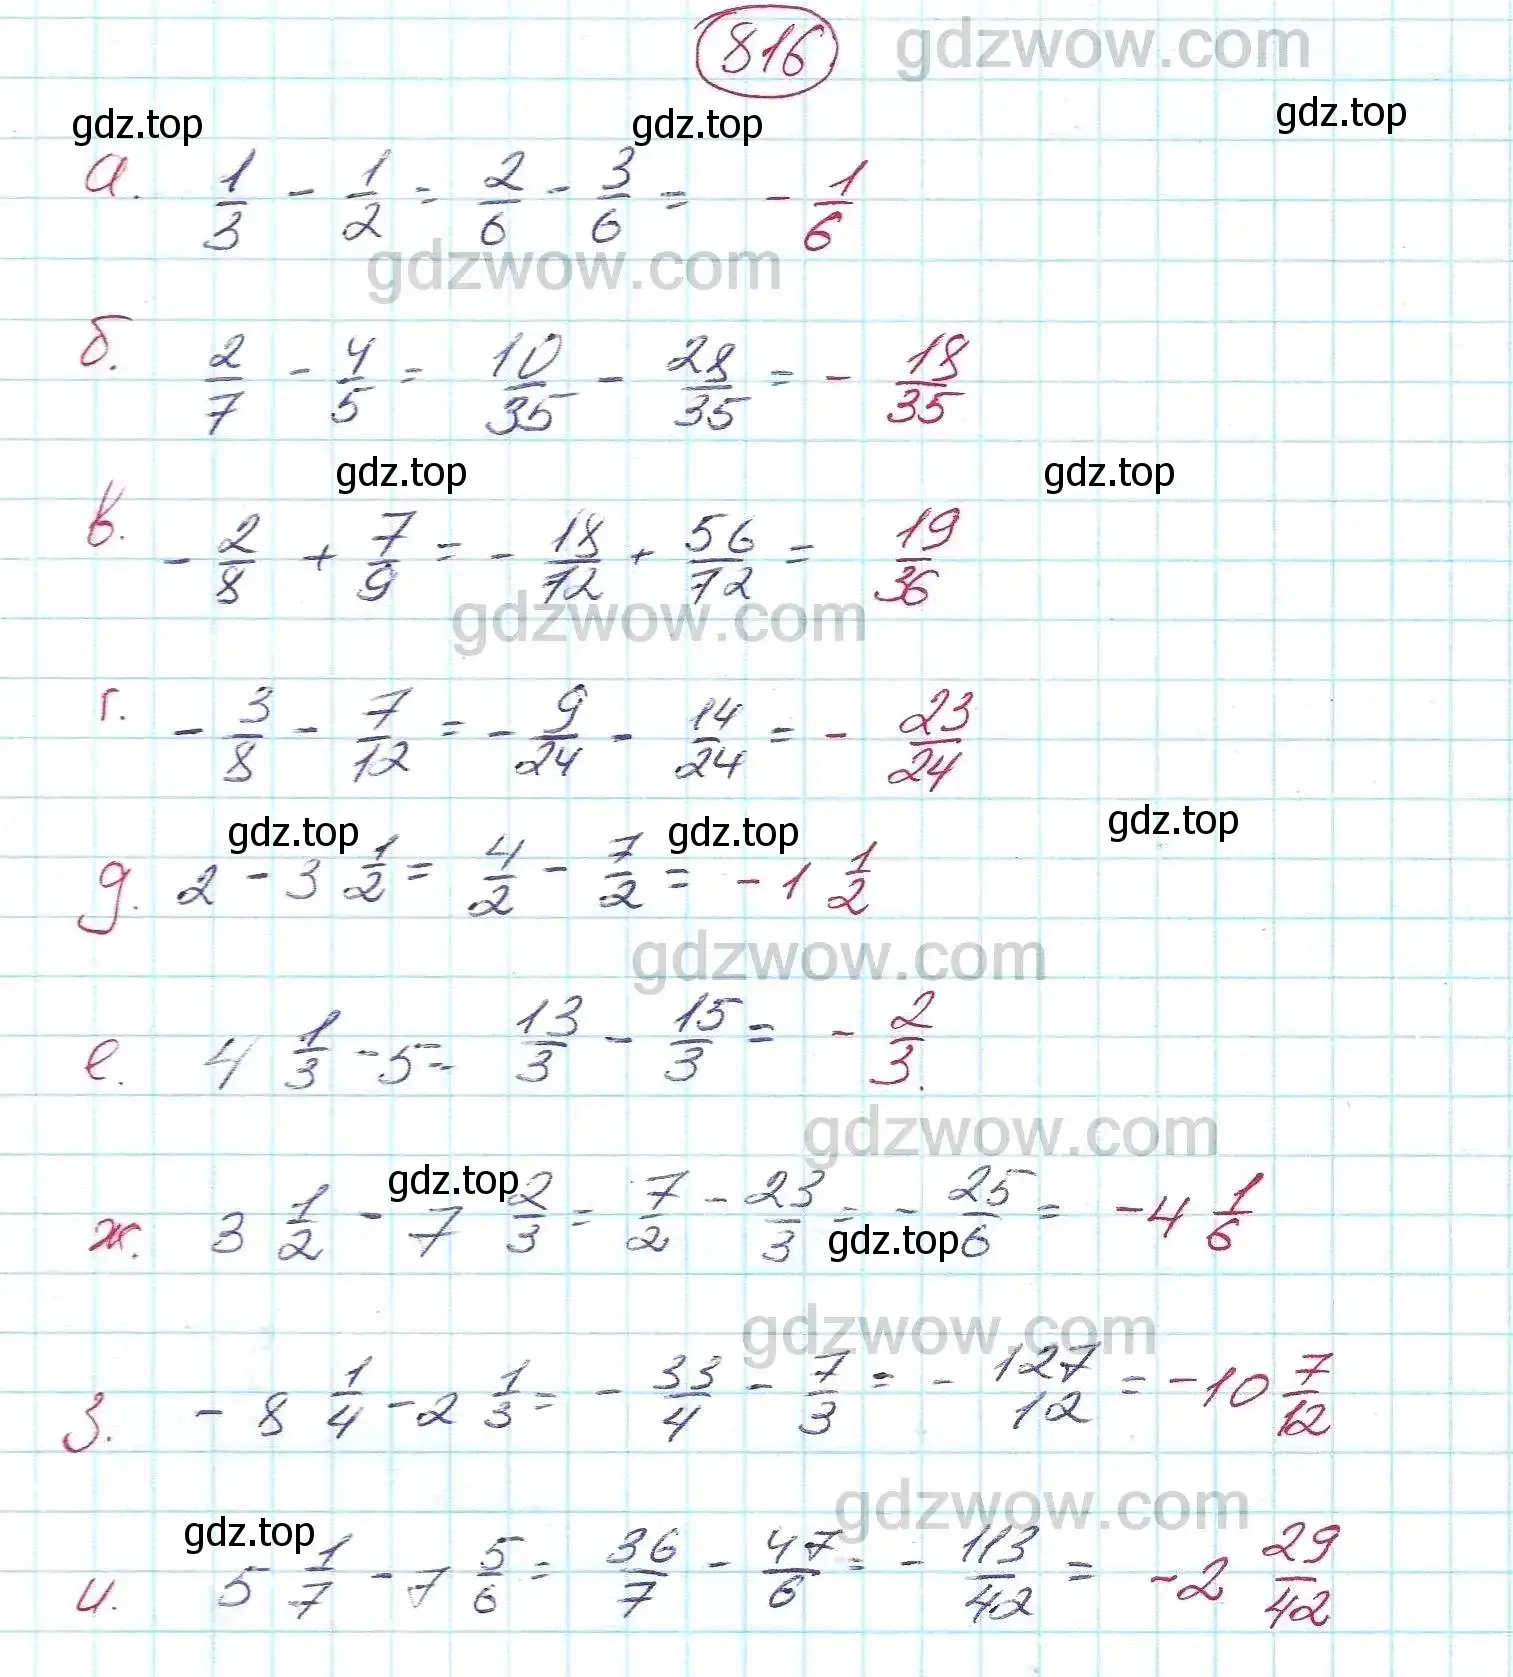 816 gdzwow.com
gdz.top gdz.top gdz.top
а. 1/3 - 1/2 = 2/6 - 3/6 = - 1/6
gdzwow.com
б. 2/7 - 4/5 = 10/35 - 28/35 = - 18/35
gdz.top gdz.top
в. - 2/8 + 7/9 = - 18/72 + 56/72 = 19/36
gdzwow.com
г. - 3/8 - 7/12 = - 9/24 - 14/24 = - 23/24
gdz.top gdz.top gdz.top
д. 2 - 3 1/2 = 4/2 - 7/2 = - 1 1/2
gdzwow.com
е. 4 1/3 - 5 = 13/3 - 15/3 = - 2/3.
gdzwow.com
gdz.top
ж. 3 1/2 - 7 2/3 = 7/2 - 23/3 = - 25/6 = - 4 1/6
gdz.top
gdzwow.com
з. - 8 1/4 - 2 1/3 = - 33/4 - 7/3 = - 127/12 = - 10 7/12
gdzwow.com
gdz.top
и. 5 1/7 - 7 5/6 = 36/7 - 47/6 = - 113/42 = - 2 29/42